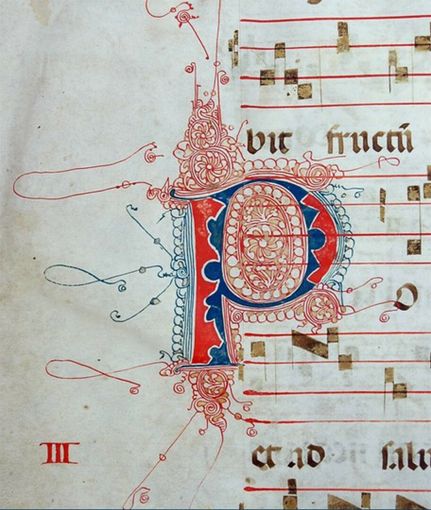 bit fructū
P o
III et ad salu